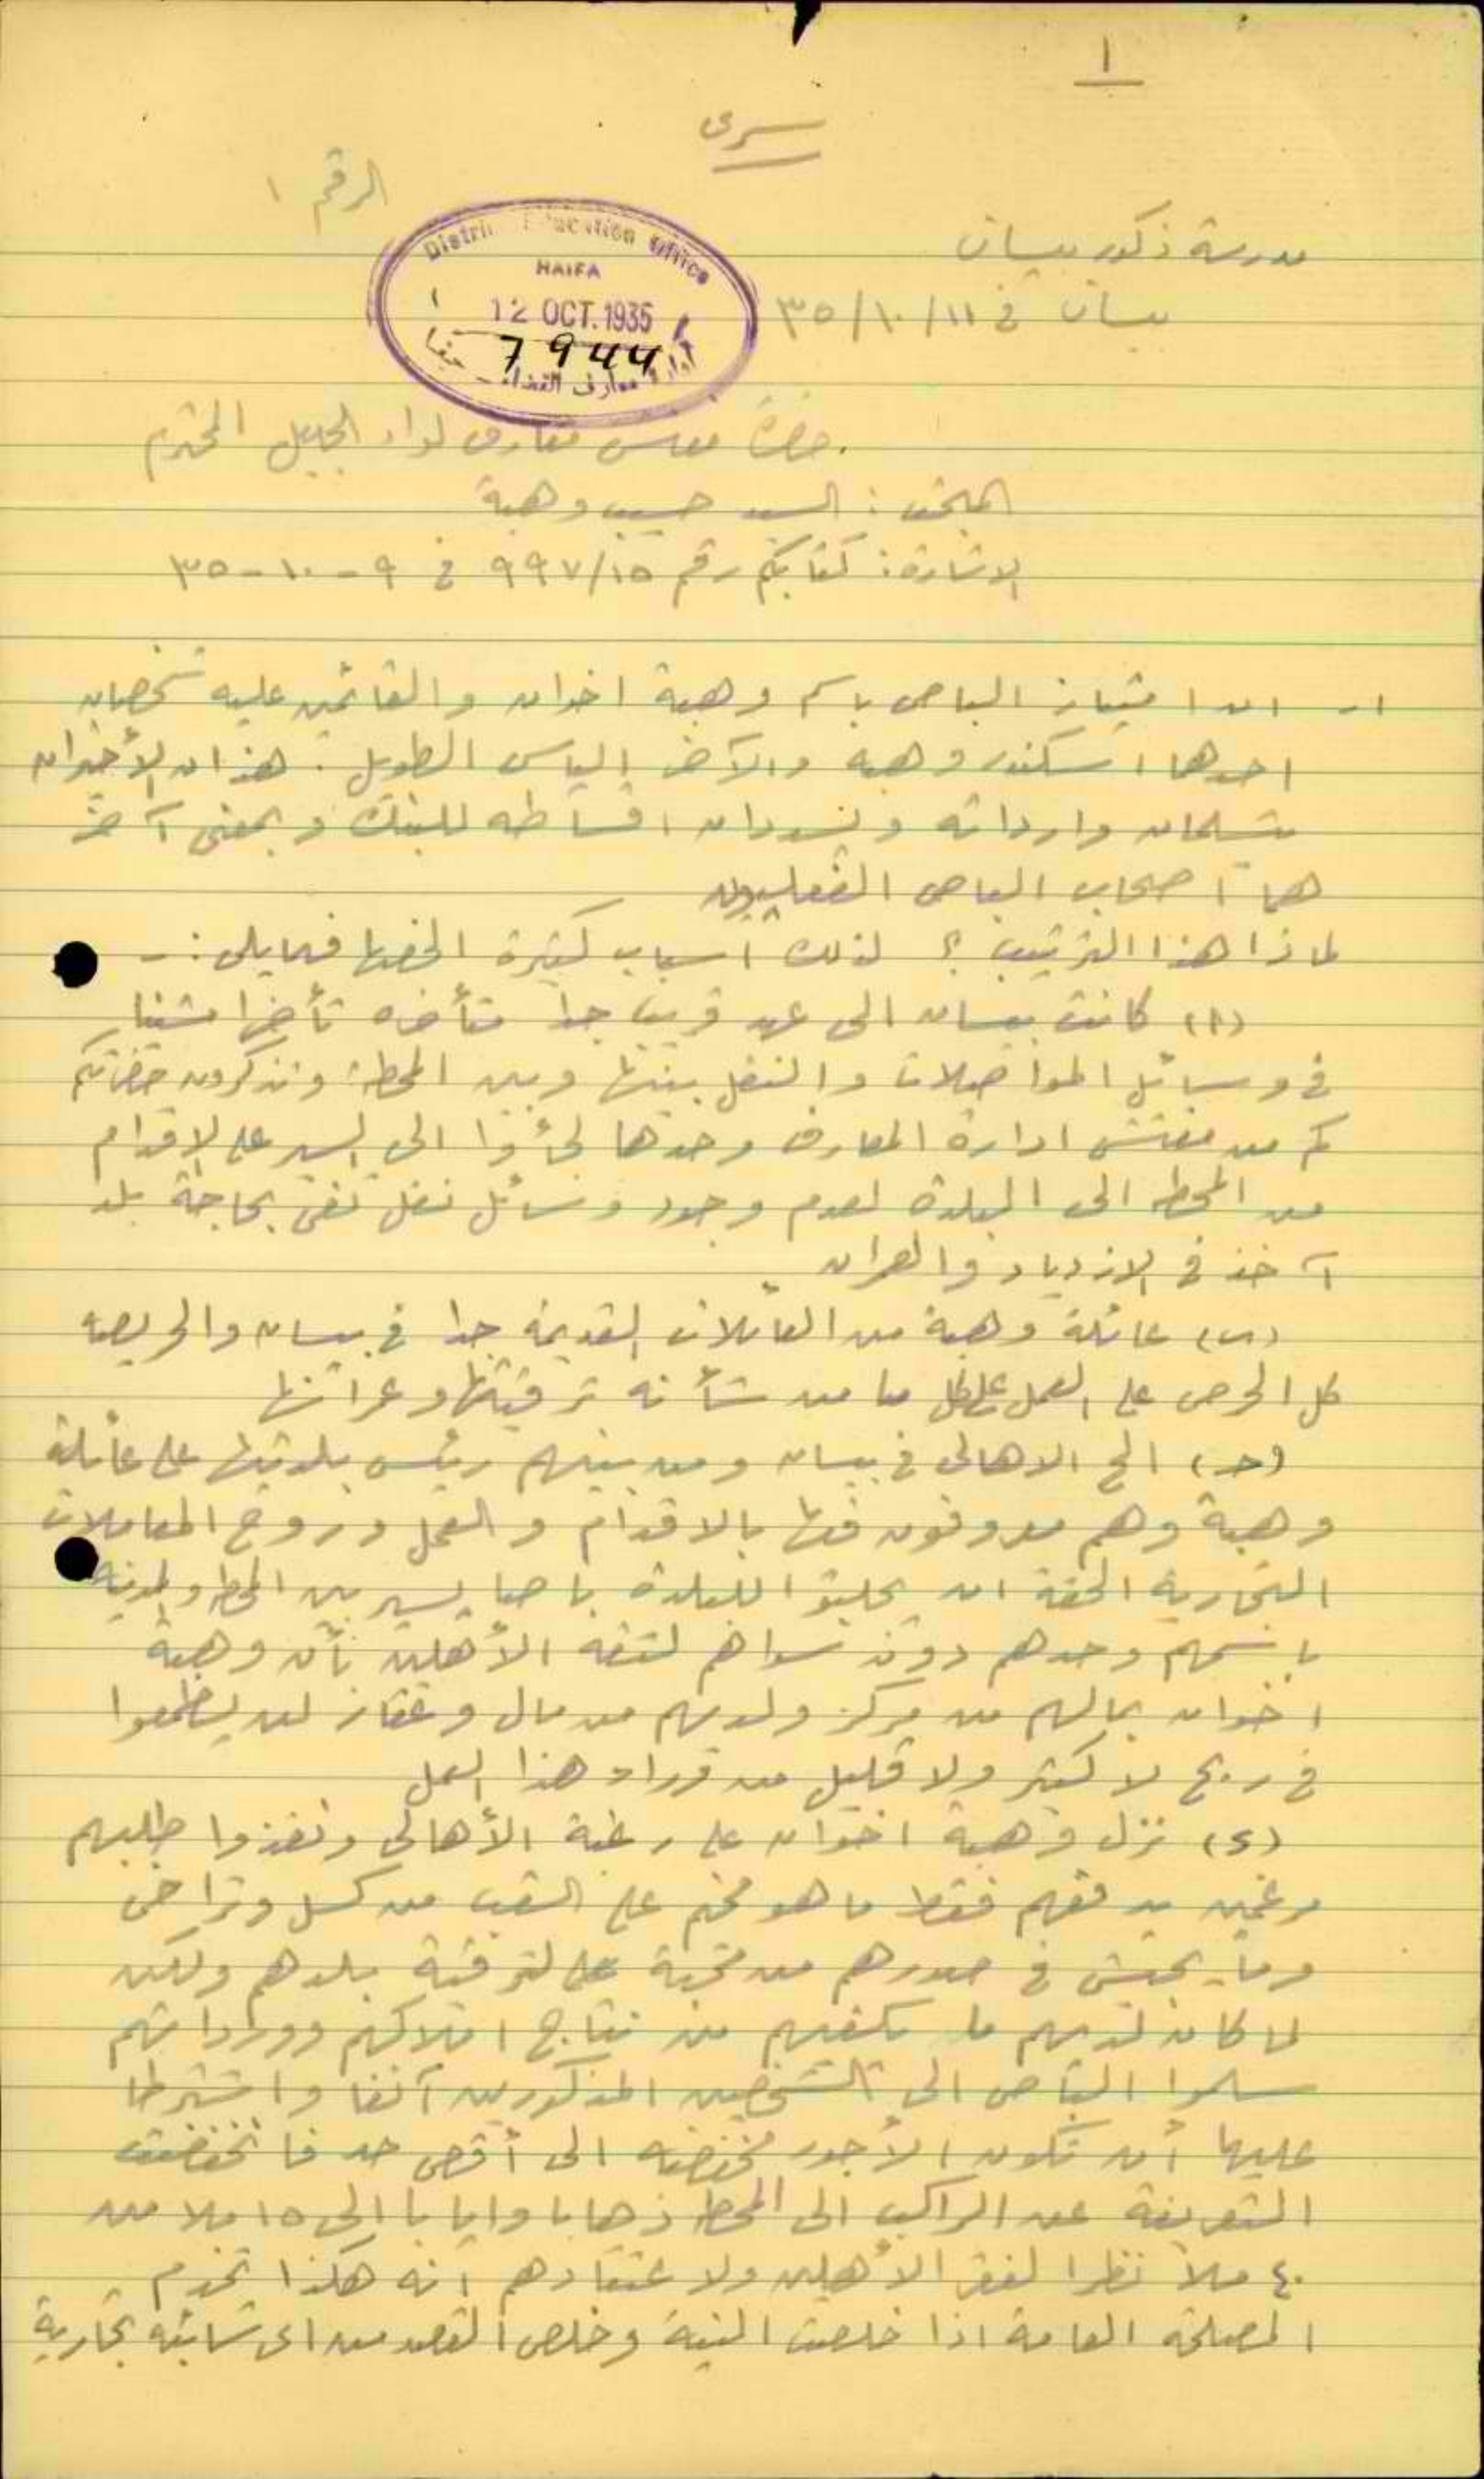 ١
سرى
الرقم ١
مدرسة ذكور بيسان
بيسان في ١١/١٠/٣٥
District Education Office
HAIFA
12 OCT. 1935
7944
ادارة معارف القضاء - حيفا
حضرة مفتش معارف لواء الجليل المحترم
المبحث : السيد حسيب وهبة
الاشارة : كتابكم رقم ٩٩٧/١٥ في ٩-١٠-٣٥
١ـ ان امتياز الباص باسم وهبة اخوان والقائمين عليه شخصان
احدهما اسكندر وهبه والآخر الياس الطويل . هذان الأخيران
يتسلمان وارداته ويسددان اقساطه للبنك وبمعنى آخر
هما اصحاب الباص الفعليون
لماذا هذا الترتيب ؟ لذلك اسباب كثيرة الخصها فيما يلى :-
(ا) كانت بيسان الى عهد قريب جدا متأخره تأخرا مشينا
في وسائل المواصلات والنقل بينها وبين المحطة وتذكرون حضرتكم
كم من مفتش ادارة المعارف وحدها لجأوا الى السير على الاقدام
من المحطه الى البلدة لعدم وجود وسائل نقل تفى بحاجة بلد
آخذ في الازدياد والعمران
(ب) عائلة وهبة من العائلات القديمة جدا في بيسان والحريصه
كل الحرص على العمل على كل ما من شأنه ترقيتها وعمرانها
(حـ) الح الاهالى في بيسان ومن بينهم رئيس بلديتها على عائلة
وهبة وهم معروفون فيها بالاقدام والعمل وروح المعاملات
التجارية الحقة ان يجلبوا للبلدة باصا يسير بين المحطه والمدينه
باسمهم وحدهم دون سواهم لثقة الأهلين بأن وهبة
اخوان بمالهم من مركز ولديهم من مال وعقار لن يطمعوا
في ربح لا كثير ولا قليل من وراء هذا العمل
(د) نزل وهبة اخوان على رغبة الأهالى ونفذوا طلبهم
مرغمين يدفعهم فقط ما هو مخيم على الشعب من كسل وتراخى
وما يجيش في صدورهم من محبة لترقية بلدهم ولكن
لما كان لديهم ما يكفيهم من نتاج املاكهم ووارداتهم
سلموا الباص الى الشخصين المذكورين آنفا واشترطا
عليهما أن تكون الأجور مخفضه الى أقصى حد فانخفضت
التعريفة عن الراكب الى المحطه ذهابا وايابا الى ١٥ ملا من
٤٠ ملا نظرا لفقر الأهلين ولاعتقادهم انه هكذا تخدم
المصلحة العامة اذا خلصت النية وخلص القصد من اى شائبة تجارية